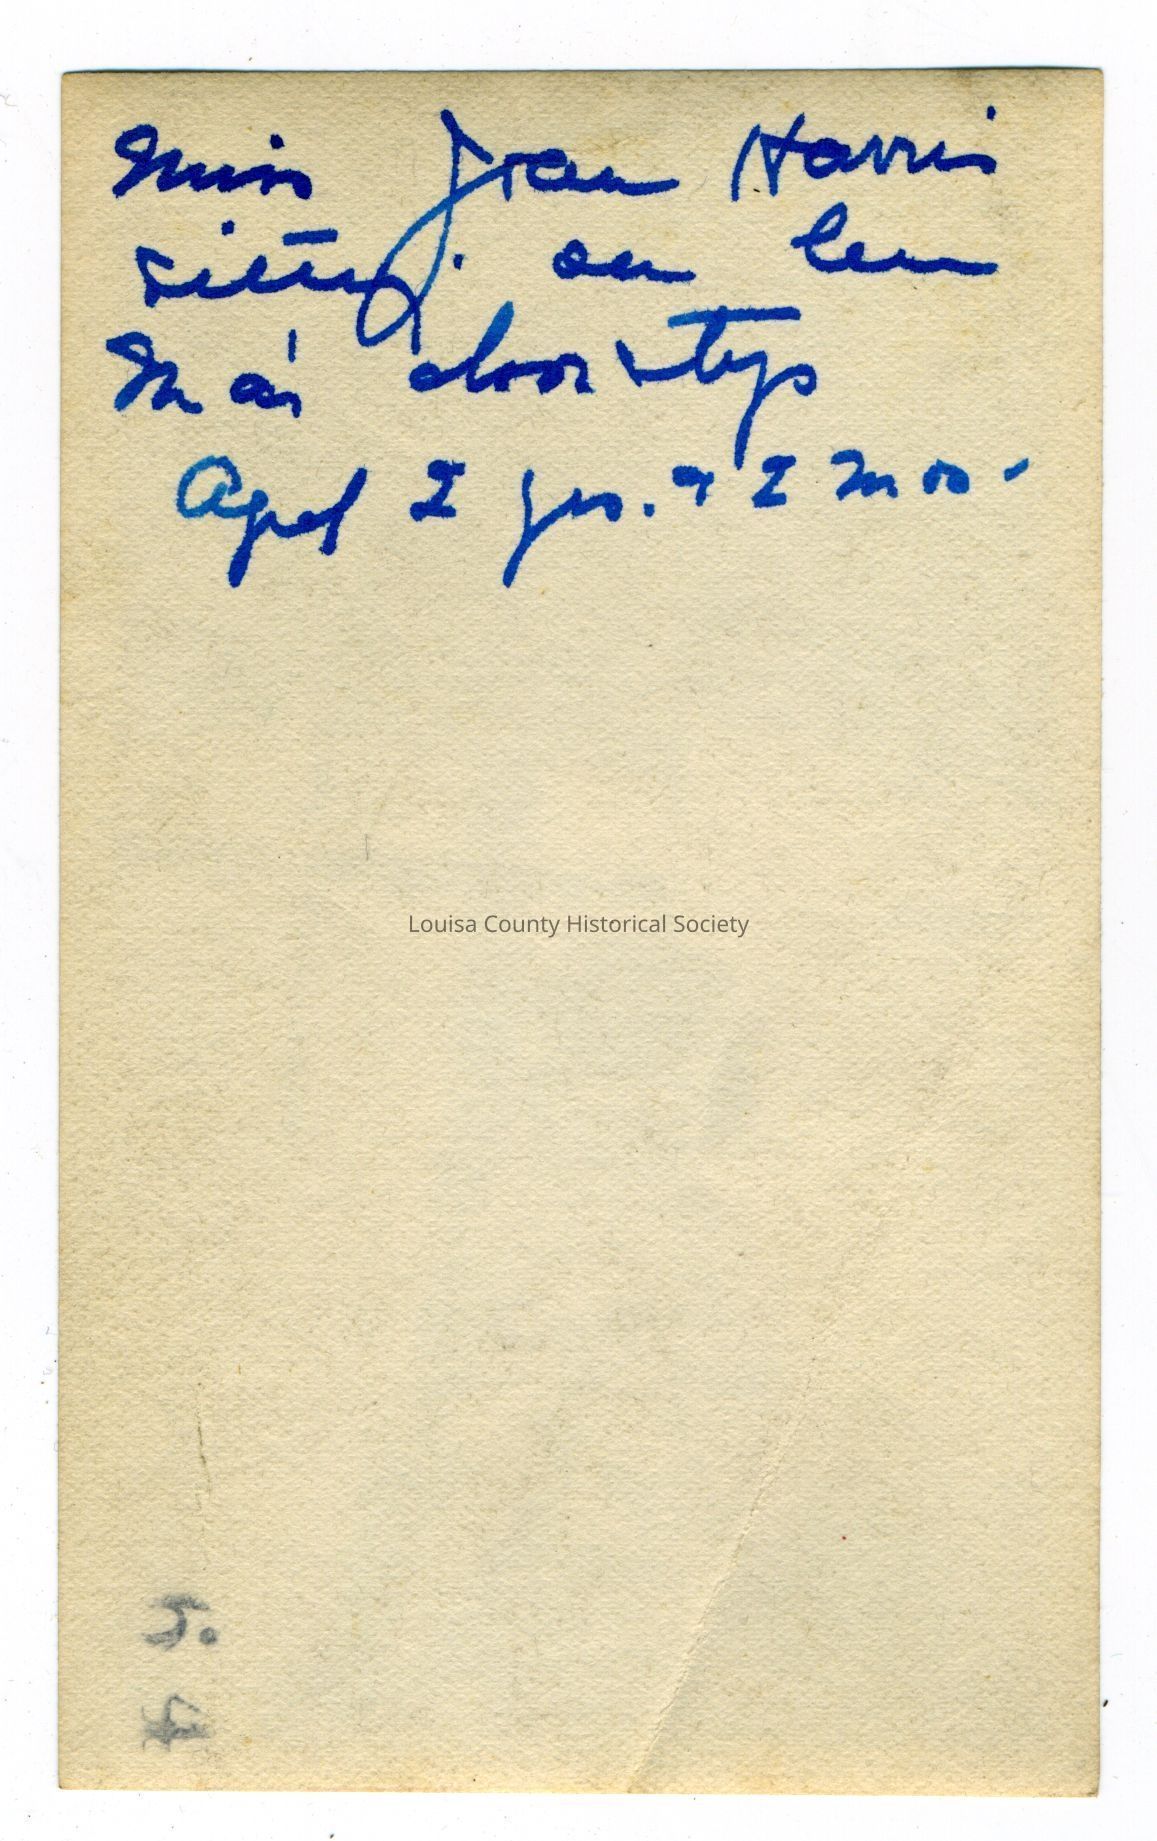 Miss Jean Harris
sitting on her
Ma's doorsteps
Aged 2 yrs. & 2 mos.
Louisa County Historical Society